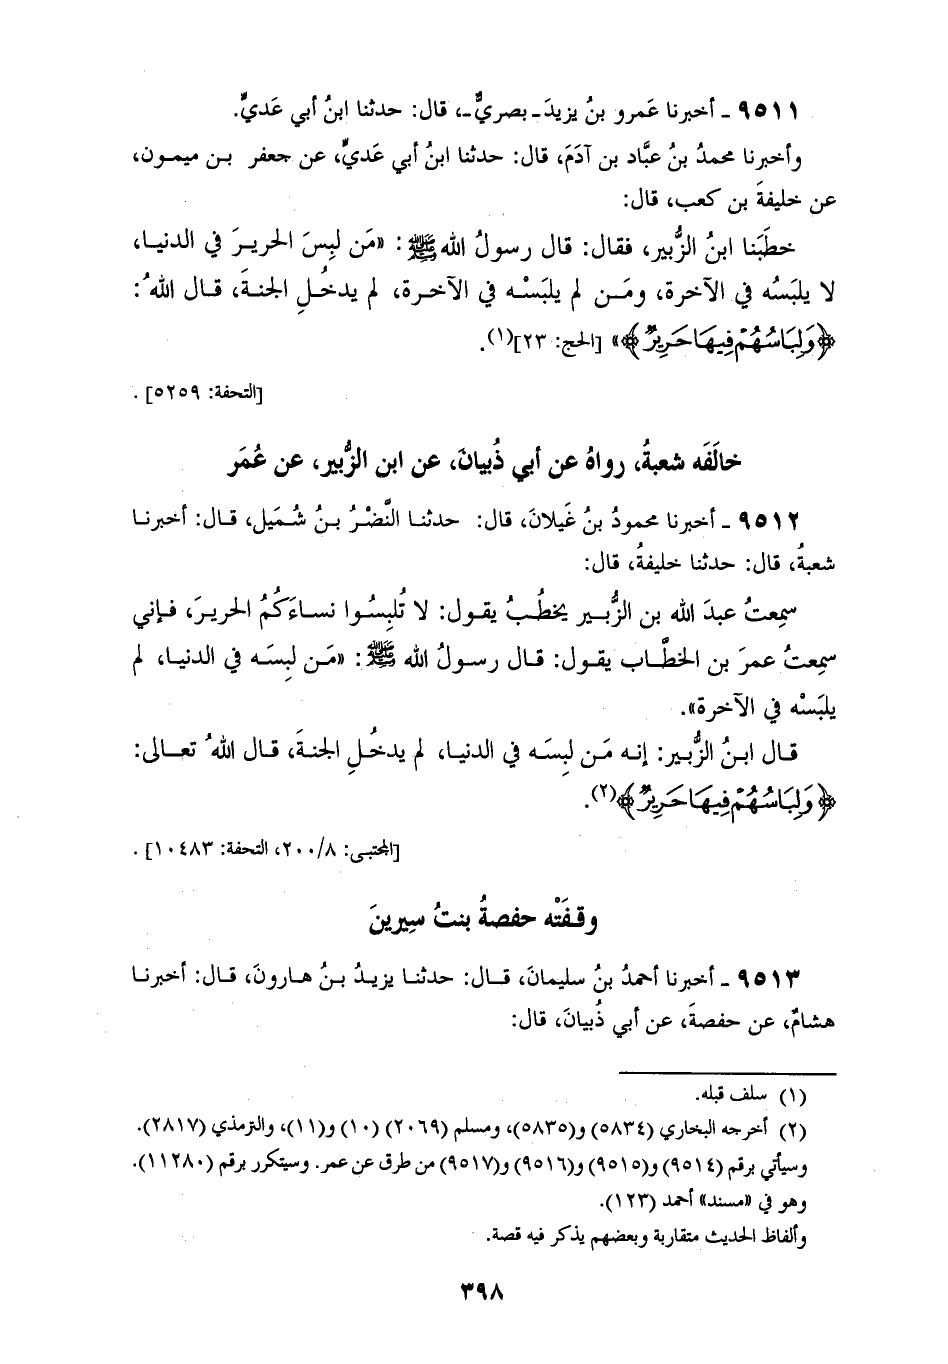 ٩٥١١ ـ أخبرنا عَمرو بنُ يزيدَ ـ بصريٌّ ـ، قال: حدثنا ابنُ أبي عَديٍّ.
وأخبرنا محمدُ بنُ عبَّاد بن آدَمَ، قال: حدثنا ابنُ أبي عَديٍّ، عن جعفر بن ميمون،
عن خليفةَ بن كعب، قال:
خطَبَنا ابنُ الزُّبير، فقال: قال رسولُ الله ﷺ: «مَن لبِسَ الحريرَ في الدنيا،
لا يلبَسُه في الآخرة، ومَن لم يلبَسْه في الآخرة، لم يدخُلِ الجنةَ، قال اللهُ:
﴿وَلِبَاسُهُمْ فِيهَا حَرِيرٌ﴾» [الحج: ٢٣](١).
[التحفة: ٥٢٥٩] .
خالَفَه شعبةُ، رواهُ عن أبي ذُبيانَ، عن ابن الزُّبير، عن عُمَر
٩٥١٢ ـ أخبرنا محمودُ بنُ غَيلانَ، قال: حدثنا النَّضْرُ بنُ شُمَيل، قال: أخبرنا
شعبةُ، قال: حدثنا خليفةُ، قال:
سمِعتُ عبدَ الله بن الزُّبير يخطُبُ يقول: لا تُلبِسُوا نساءَكُمُ الحريرَ، فإني
سمِعتُ عمرَ بن الخطَّاب يقول: قال رسولُ الله ﷺ: «مَن لبِسَه في الدنيا، لم
يلبَسْه في الآخرة».
قال ابنُ الزُّبير: إنه مَن لبِسَه في الدنيا، لم يدخُلِ الجنةَ، قال اللهُ تعالى:
﴿وَلِبَاسُهُمْ فِيهَا حَرِيرٌ﴾(٢).
[المجتبى: ٢٠٠/٨، التحفة: ١٠٤٨٣] .
وقَفَتْه حفصةُ بنتُ سِيرينَ
٩٥١٣ ـ أخبرنا أحمدُ بنُ سليمانَ، قال: حدثنا يزيدُ بنُ هارونَ، قال: أخبرنا
هشامٌ، عن حفصةَ، عن أبي ذُبيانَ، قال:
(١) سلف قبله.
(٢) أخرجه البخاري (٥٨٣٤) و(٥٨٣٥)، ومسلم (٢٠٦٩) (١٠) و(١١)، والترمذي (٢٨١٧).
وسيأتي برقم (٩٥١٤) و(٩٥١٥) و(٩٥١٦) و(٩٥١٧) من طرق عن عمر. وسيتكرر برقم (١١٢٨٠).
وهو في «مسند» أحمد (١٢٣).
وألفاظ الحديث متقاربة وبعضهم يذكر فيه قصة.
٣٩٨